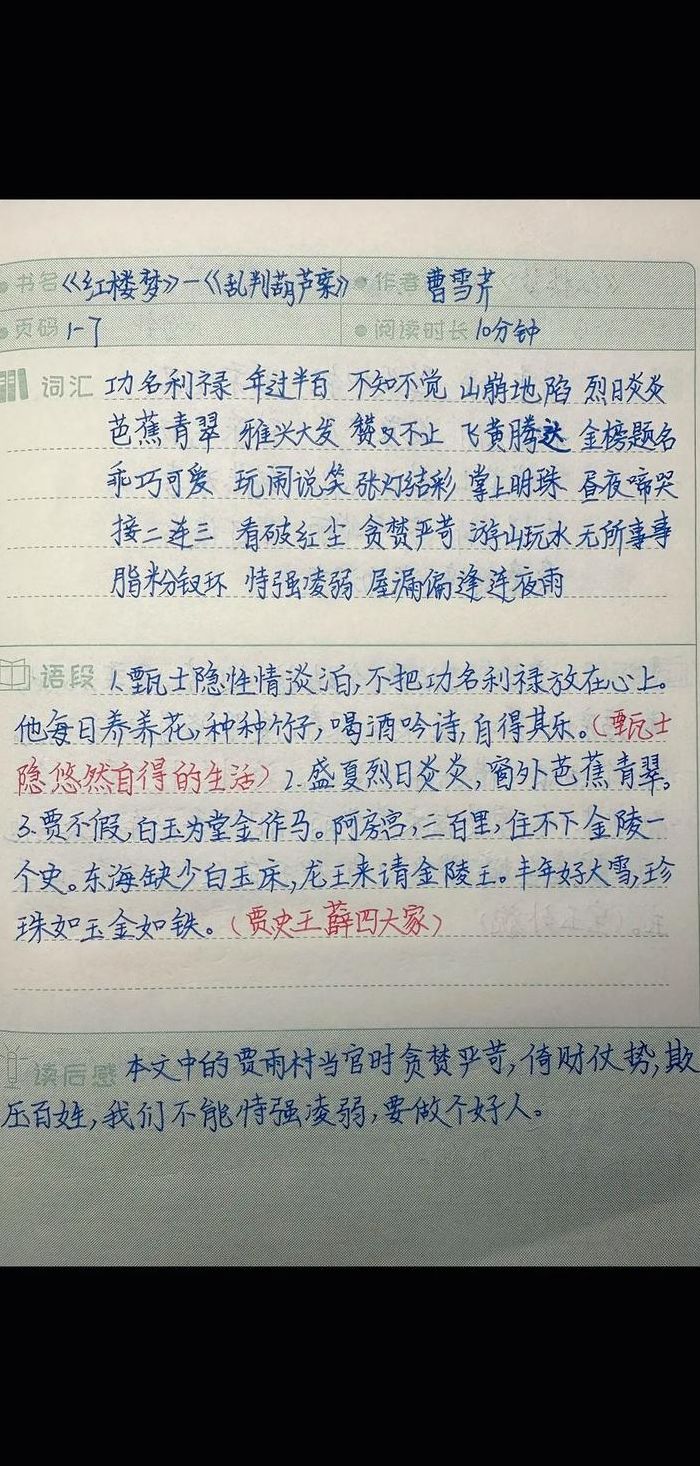 书名《红楼梦》—《乱判葫芦案》 作者 曹雪芹
页码 1-7 阅读时长 10分钟
词汇 功名利禄 年过半百 不知不觉 山崩地陷 烈日炎炎
芭蕉青翠 雅兴大发 赞叹不止 飞黄腾达 金榜题名
乖巧可爱 玩闹说笑 张灯结彩 掌上明珠 昼夜啼哭
接二连三 看破红尘 贪婪严苛 游山玩水 无所事事
脂粉钗环 恃强凌弱 屋漏偏逢连夜雨
语段 1.甄士隐性情淡泊,不把功名利禄放在心上。
他每日养养花,种种竹子,喝酒吟诗,自得其乐。(甄士
隐悠然自得的生活) 2.盛夏烈日炎炎,窗外芭蕉青翠。
3.贾不假,白玉为堂金作马。阿房宫,三百里,住不下金陵一
个史。东海缺少白玉床,龙王来请金陵王。丰年好大雪,珍
珠如玉金如铁。(贾史王薛四大家)
读后感 本文中的贾雨村当官时贪婪严苛,倚财仗势,欺
压百姓,我们不能恃强凌弱,要做个好人。